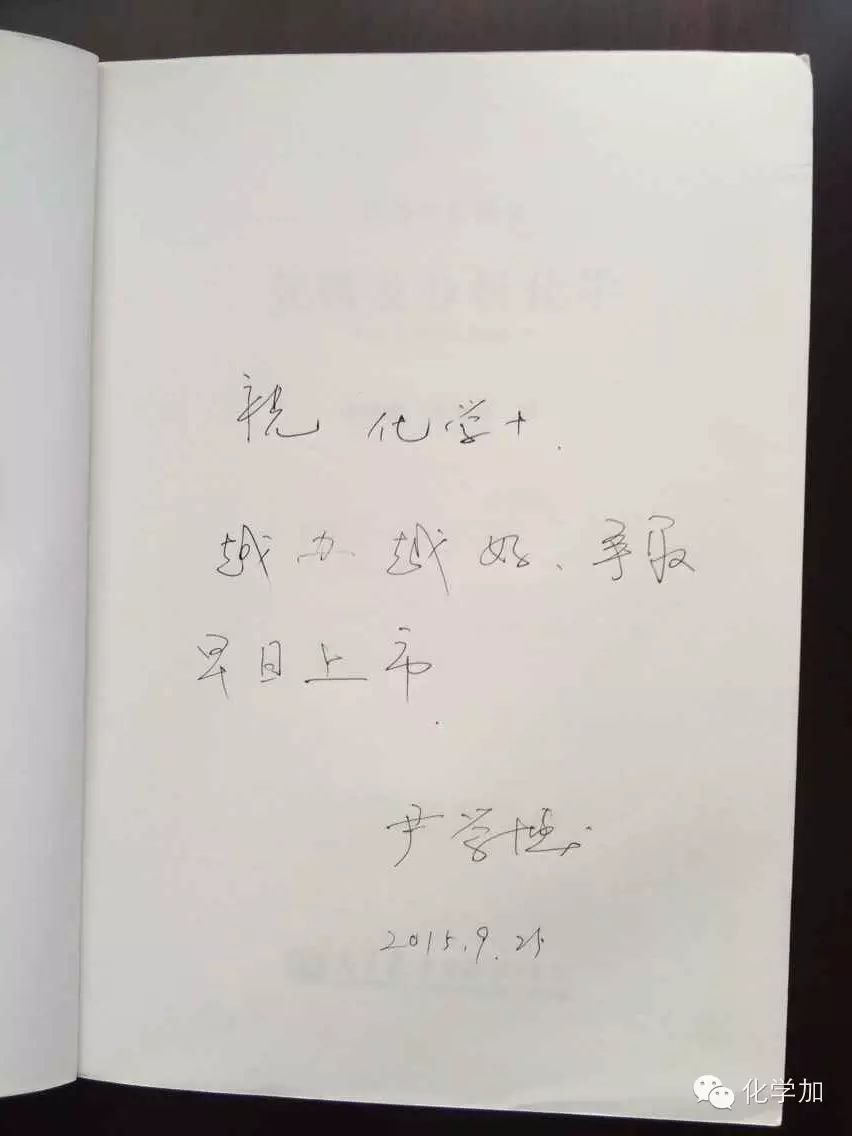 祝 化学+.
越办越好、争取
早日上市.
尹学博
2015.9.25
化学加